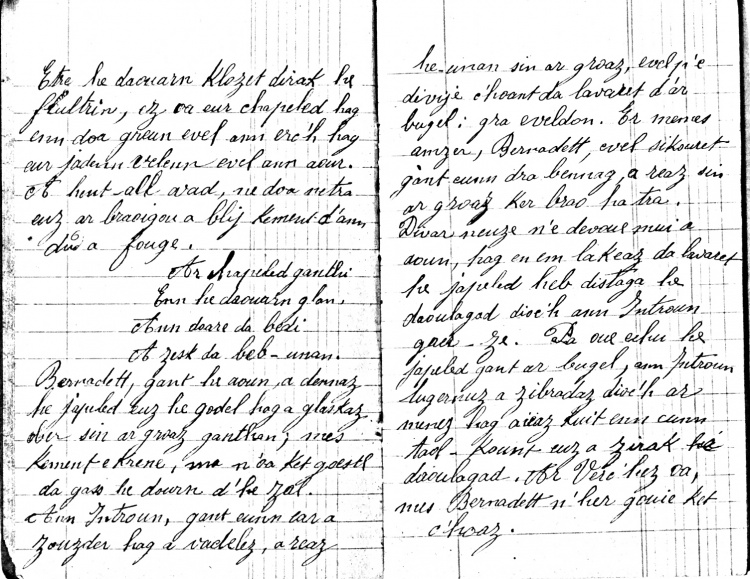 Etre he daouarn klozet dirak he
feultrin, ez oa eur chapeled hag
enn doa greun evel ann erc'h hag
eur jadenn velenn evel ann aour.
A hent all avad, ne doa netra
euz ar braoigou a blij kement d'ann
dud a fouge.
Ar chapeled ganthi
Enn he daouarn glan,
Ann doare da bedi
A zesk da beb-unan.
Bernadett, gant he aoun, a dennaz
he japeled euz he godel hag a glaskaz
ober sin ar groaz ganthan; mes
kement e krene, ma n'oa ket goestl
da gass he dourn d'he zal.
Ann Introun, gant eunn ear a
zouzder hag a vadelez, a reaz
he-unan sin ar groaz, evel p'e
divije c'hoant da lavaret d'ar
bugel: gra eveldon. Er memes
amzer, Bernadett, evel sikouret
gant eunn dra bennag, a reaz sin
ar groaz ker brao ha tra.
Divar neuze n'e devoue mui a
aoun, hag en em lakeaz da lavaret
he japeled heb distaga he
daoulagad dioc'h ann Introun
gaer-ze. Pa oue echu he
japeled gant ar bugel, ann Introun
lugernuz a zibradaz dioc'h ar
menez hag a ieaz kuit enn eunn
taol-kount euz a zirak he
daoulagad. Ar Verc'hez oa,
mes Bernadett n'her gouie ket
c'hoaz.